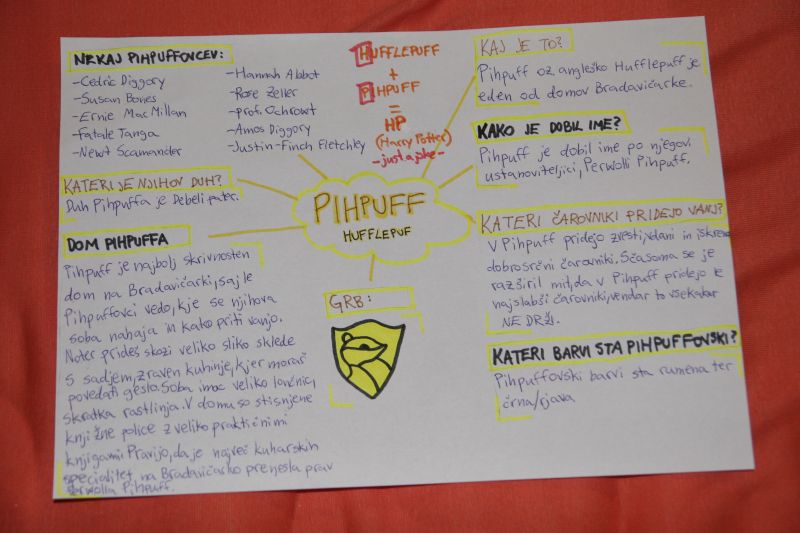 NEKAJ PIHPUFFOVCEV:
-Cedric Diggory
-Susan Bones
-Ernie MacMillan
-Fatale Tanga
-Newt Scamander
-Hannah Abbot
-Rose Zeller
-prof. Ochrowt
-Amos Diggory
-Justin-Finch Fletchky
HUFFLEPUFF
+
PIHPUFF
=
HP
(Harry Potter)
-just a joke-
KAJ JE TO?
Pihpuff oz. angleško Hufflepuff je
eden od domov Bradavičarke.
KAKO JE DOBIL IME?
Pihpuff je dobil ime po njegovi
ustanoviteljici, Perwolli Pihpuff.
KATERI JE NJIHOV DUH?
Duh Pihpuffa je Debeli pater.
PIHPUFF
HUFFLEPUF
KATERI ČAROVNIKI PRIDEJO VANJ?
V Pihpuff pridejo zvesti, vdani in iskreno
dobrosrčni čarovniki. Sčasoma se je
razširil mit, da v Pihpuff pridejo le
najslabši čarovniki, vendar to vsekakor
NE DRŽI.
DOM PIHPUFFA
Pihpuff je najbolj skrivnosten
dom na Bradavičarki, saj le
Pihpuffovci vedo, kje se njihova
soba nahaja in kako priti vanjo.
Noter prideš skozi veliko sliko sklede
s sadjem, zraven kuhinje, kjer moraš
povedati geslo. Soba ima veliko lončnic,
skratka rastlinja. V domu so stisnjene
knjižne police z veliko praktičnimi
knjigami. Pravijo, da je največ kuharskih
specialitet na Bradavičarko prenesla prav
Perwolla Pihpuff.
GRB:
KATERI BARVI STA PIHPUFFOVSKI?
Pihpuffovski barvi sta rumena ter
črna/rjava